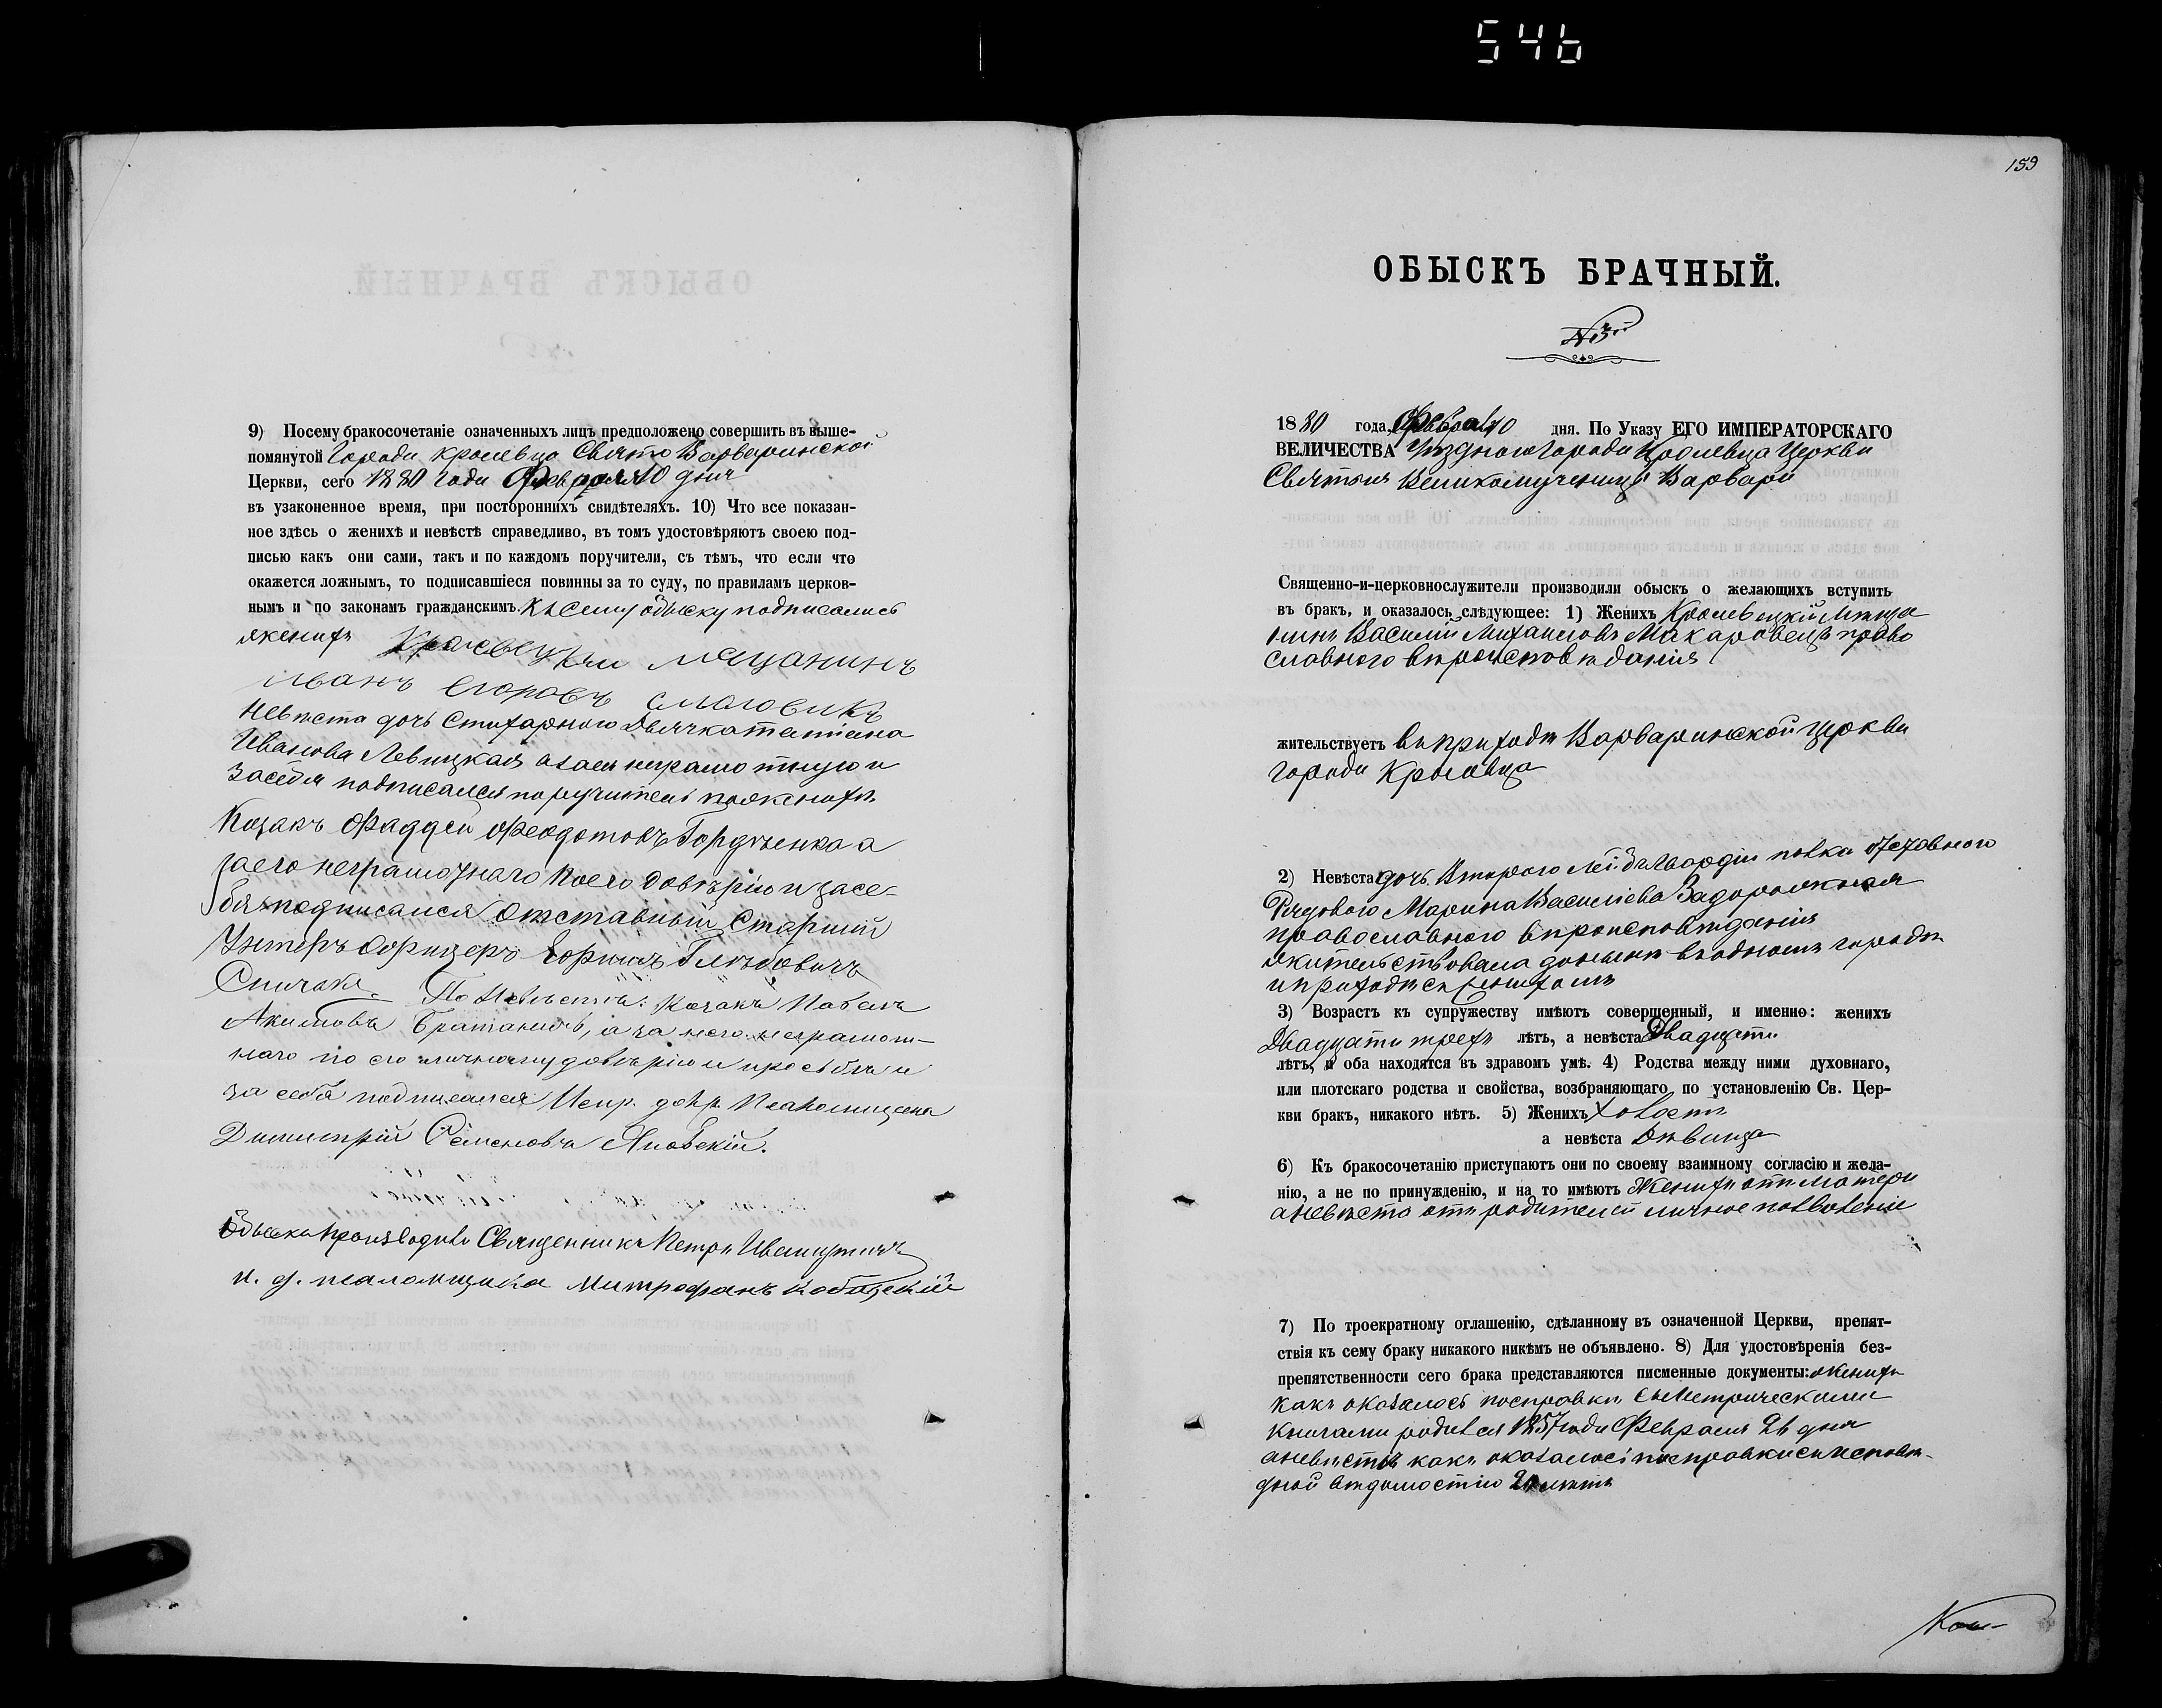 546
9) Посему бракосочетаніе означенныхъ лицъ предположено совершить въ выше-
помянутой Города Кролевца Свято Варваринской
Церкви, сего 1880 года Февраля 10 дня
въ узаконенное время, при постороннихъ свидѣтеляхъ. 10) Что все показан-
ное здѣсь о женихѣ и невѣстѣ справедливо, въ томъ удостовѣряютъ своею под-
писью какъ они сами, такъ и по каждомъ поручители, съ тѣмъ, что если что
окажется ложнымъ, то подписавшіеся повинны за то суду, по правиламъ церков-
нымъ и по законамъ гражданскимъ. Къ сему обыску подписались
женихъ Кролевецкій мещанинъ
иванъ егоровъ
Невѣста дочь Стихарного Дьячка Татіана
Иванова Левицкая а за ея неграмотную и
за себя подписался поручитель по женихѣ
Козакъ Фаддей Феодотовъ Гордѣенко а
за его неграмотнаго по его довѣрію и за се-
бя подписался Отставный Старшій
Унтеръ Офицеръ Ефимъ Глѣбовичъ
Спичака. По Невѣстѣ: Козакъ Павелъ
Акимовъ Братаничъ, а за него неграмот-
наго по его личному довѣрію и просьбѣ и
за себя подписался Испр. долж. Псаломщика
Димитрій Семеновъ Яновскій.
Обыскъ производилъ Священникъ Петръ
и. д. псаломщика Митрофанъ
159
ОБЫСКЪ БРАЧНЫЙ.
№ 3й
1880 года, Февраля 10 дня. По Указу ЕГО ИМПЕРАТОРСКАГО
ВЕЛИЧЕСТВА Уѣздного Города Кролевца Церкви
Святыя Великомученицы Варвары
Священно-и-церковнослужители производили обыскъ о желающихъ вступить
въ бракъ, и оказалось слѣдующее: 1) Женихъ Кролевецкій мѣща
нинъ Василій Михаиловъ Макаровецъ право
славного вѣроисповѣданія
жительствуетъ въ приходѣ Варваринской церкви
города Кролевца
2) Невѣста дочь Второго Лейбъ Гвардіи полка
Рядового Марина Василіева Задорожная
православного вѣроисповѣданія
жительствовала донынѣ въ одномъ городѣ
и приходѣ съ женихомъ
3) Возрастъ къ супружеству имѣютъ совершенный, и именно: женихъ
Двадцати трехъ лѣтъ, а невѣста Двадцати
лѣтъ, и оба находятся въ здравомъ умѣ. 4) Родства между ними духовнаго,
или плотскаго родства и свойства, возбраняющаго по установленію Св. Цер-
кви бракъ, никакого нѣтъ. 5) Женихъ холостъ
а невѣста Дѣвица
6) Къ бракосочетанію приступаютъ они по своему взаимному согласію и жела-
нію, а не по принужденію, и на то имѣютъ Женихъ отъ матери
а невѣста отъ родителей личное позволеніе
7) По троекратному оглашенію, сдѣланному въ означенной Церкви, препят-
ствія къ сему браку никакого никѣмъ не объявлено. 8) Для удостовѣренія без-
препятственности сего брака представляются писменные документы: женихъ
какъ оказалось по справкѣ съ Метрическими
книгами родился 1857 года Февраля 26 дня
а невѣстѣ какъ оказалось по справкѣ съ исповѣ-
дной вѣдомостію 20 лѣтъ